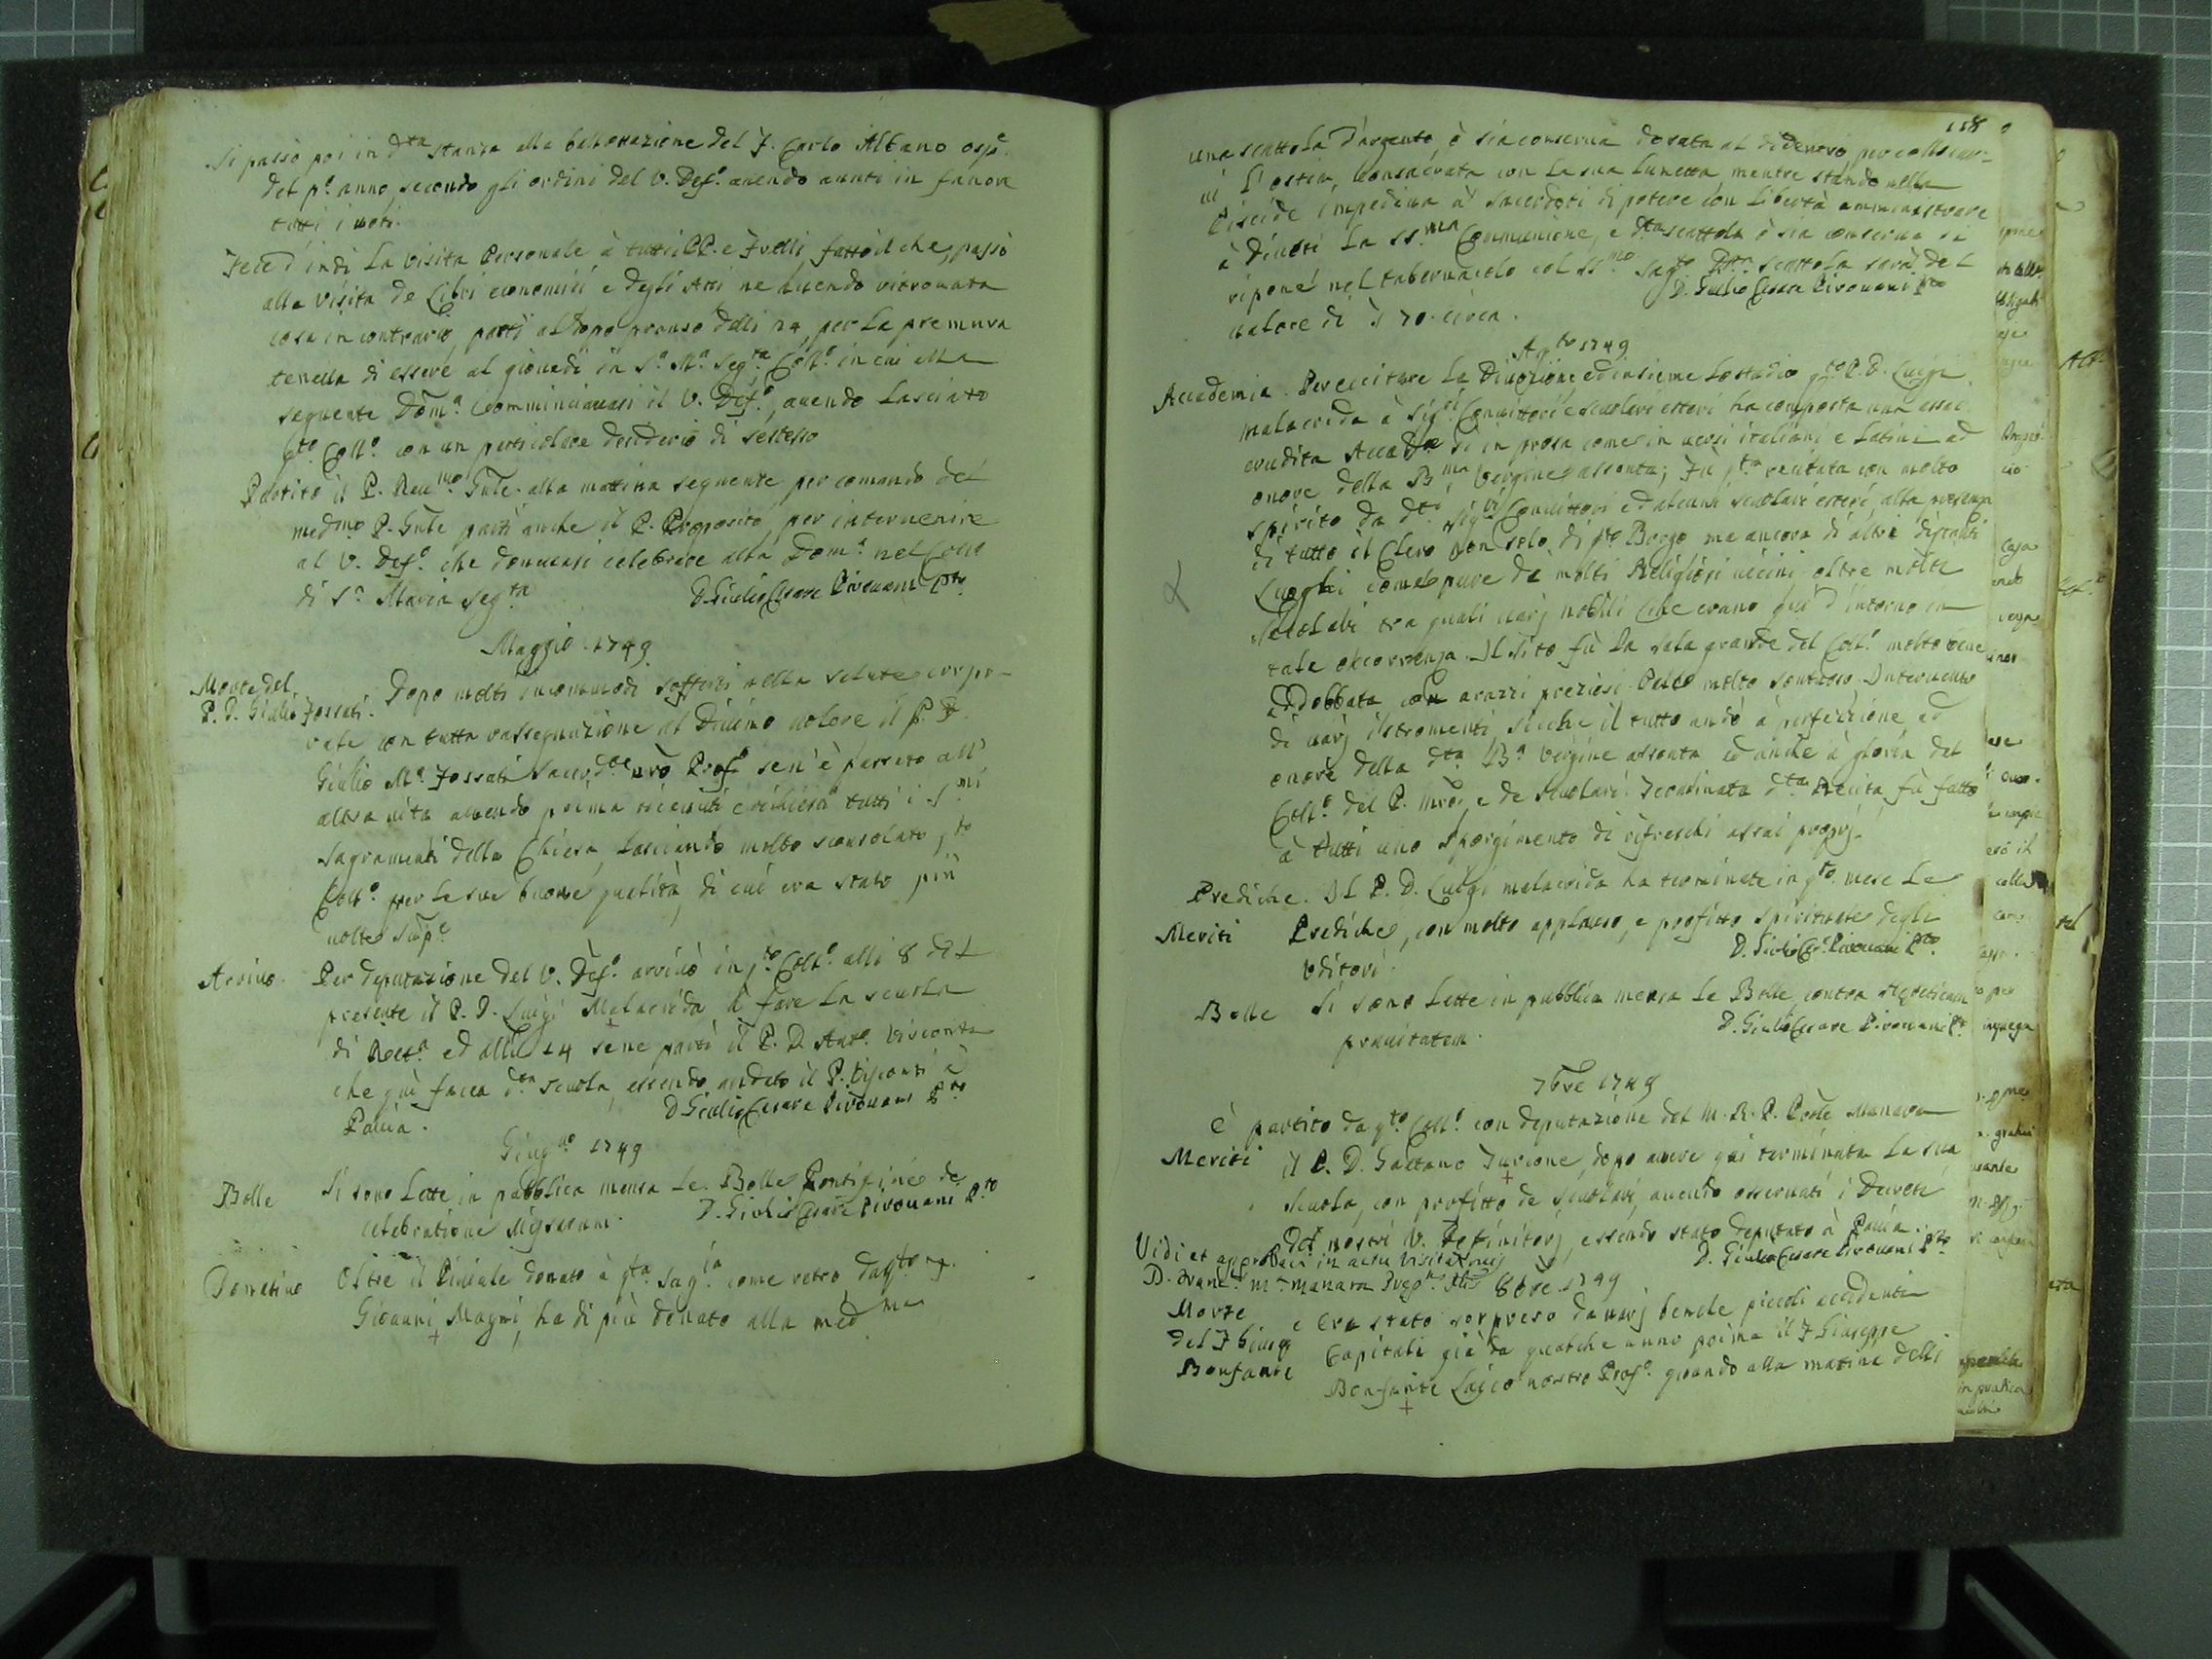 Si passò poi in dta stanza alla ballottazione del F. Carlo Albano osp.e
del po. anno secondo gli ordini del V. Defo. avendo avuti in favore
tutti i voti.
Fece d'indi la visita Personale à tutti i PP. e Frelli, fatto il che, passò
alla visita de Libri economici e degli Atti ne avendo ritrovata
cosa in contrario, partì al dopo pranso delli 24, per la premura
tenella di essere al giovedi in Sa. Ma. Segta. Collo. in cui alla
seguente Doma. comminciavasi il V. Defo., avendo lasciato
qto Collo. con un particolare desiderio di sestesso
Partito il P. Revmo Gnle. alla mattina seguente per comando del
medmo P. Gnle partì anche il P. Proposito, per intervenire
al V. Defo. che dovevasi celebrare alla Doma. nel Collo
di Sa. Maria Segta D. Giulio Cesare Pirovani Pto.
Maggio 1749
Morte del
P. D. Giulio Fossati. Dopo molti incommodi sofferti nella salute corpo-
rale con tutta rassegnazione al Divino volere il P. D.
Giulio Ma. Fossati Sacerdote nro Profo sen'è passato all'
altra vita avendo prima ricevuti tutti i Smi
Sagramenti della Chiesa, lasciando molto sconsolato qto
Collo. per le sue buone qualità, di cui era stato più
volte Supe.
Arrivo. Per deputazione del V. Defo. arrivò in qto. Collo. alli 8 del
presente il P. D. Luigi Malacrida à fare la scuola
di Retta. ed alli 24 sene partì il P. D. Anto. Visconti
che quì facea dta scuola, essendo andato il P. Visconti à
Pavia. D. Giulio Cesare Pirovani Pto
Giugno 1749
Bolle Si sono lette in pubblica mensa le Bolle Pontificie de
celebratione Missarum. D. Giulio Cesare Pirovani Pto
Donativo Oltre il Piviale donato à qta. Sagia come retro da qto F.
Giovanni Magni, ha di più donato alla medma
158
una scattola d'argento, ò sia conserva dorata al di dentro, per collocar-
vi l'ostia, Consacrata con la sua lunetta mentre stando nella
Piscide impediva à Sacerdoti di potere con libertà amministrare
à Divoti la SS.ma Communione, e dta scattola ò sia conserva si
ripone nel tabernacolo col SS.mo Sagto. Dta scattola sarà del
valore di 70. circa. D. Giulio Cesare Pirovani Pto
Agto 1749
Accademia. Per eccitare la Divozione ed insieme lo studio qto P. D. Luigi
Malacrida à Sigri Convittori e scuolari esteri ha composta una assai
erudita Accada sì in prosa come in versi italiani e latini ad
onore della Bma Vergine assonta; Fù qta recitata con molto
spirito da dti Sigri Convittori ed alcuni scuolari esteri, alla presenza
di tutto il Clero non solo di qto Borgo ma ancora di altri distanti
luoghi come pure da molti Religiosi vicini, oltre molti
Secolari tra quali varj nobili che erano quì d'intorno in
tale occorrenza. Il sito fù la sala grande del Collo. molto bene
addobbata con arazzi preziosi. Palco molto sontuoso. Intervento
di varj istromenti, sicche il tutto andò à perfezzione ad
onore della dta Ba Vergine assonta ed anche à gloria del
Collo. del P. Mro, e de Scuolari. Terminata dta Recita fù fatto
à tutti uno sporgimento di rifreschi assai proprj.
Prediche. Il P. D. Luigi Malacrida ha terminate in qto mese le
Meriti Prediche, con molto applauso, e profitto spirituale degli
Uditori. D. Giulio Ces. Pirovani Pto.
Bolle Si sono lette in pubblica mensa le Bolle, contra Hereticam
pravitatem. D. Giulio Cesare Pirovani Pt.
7bre 1749
È partito da qto Collo. con deputazione del M. R. P. Prole Manara
Meriti il P. D. Gaetano Furione, dopo avere qui terminata la sua
scuola, con profitto de Scuolari, avendo osservati i Decreti
de nostri V. Definitorj, essendo stato deputato à Pavia.
D. Giulio Cesare Pirovani Pto
Vidi et approbavi in actu Visitationis
D. Franc. M.a Manara Prepo. Plis 8bre 1749
Morte
del F Giuse
Bonfante
Era stato sorpreso da varj benche piccoli accidenti
Capitali già da qualche anno prima il F Giuseppe
Bonfante Laico nostro Profo. quando alla matina delli